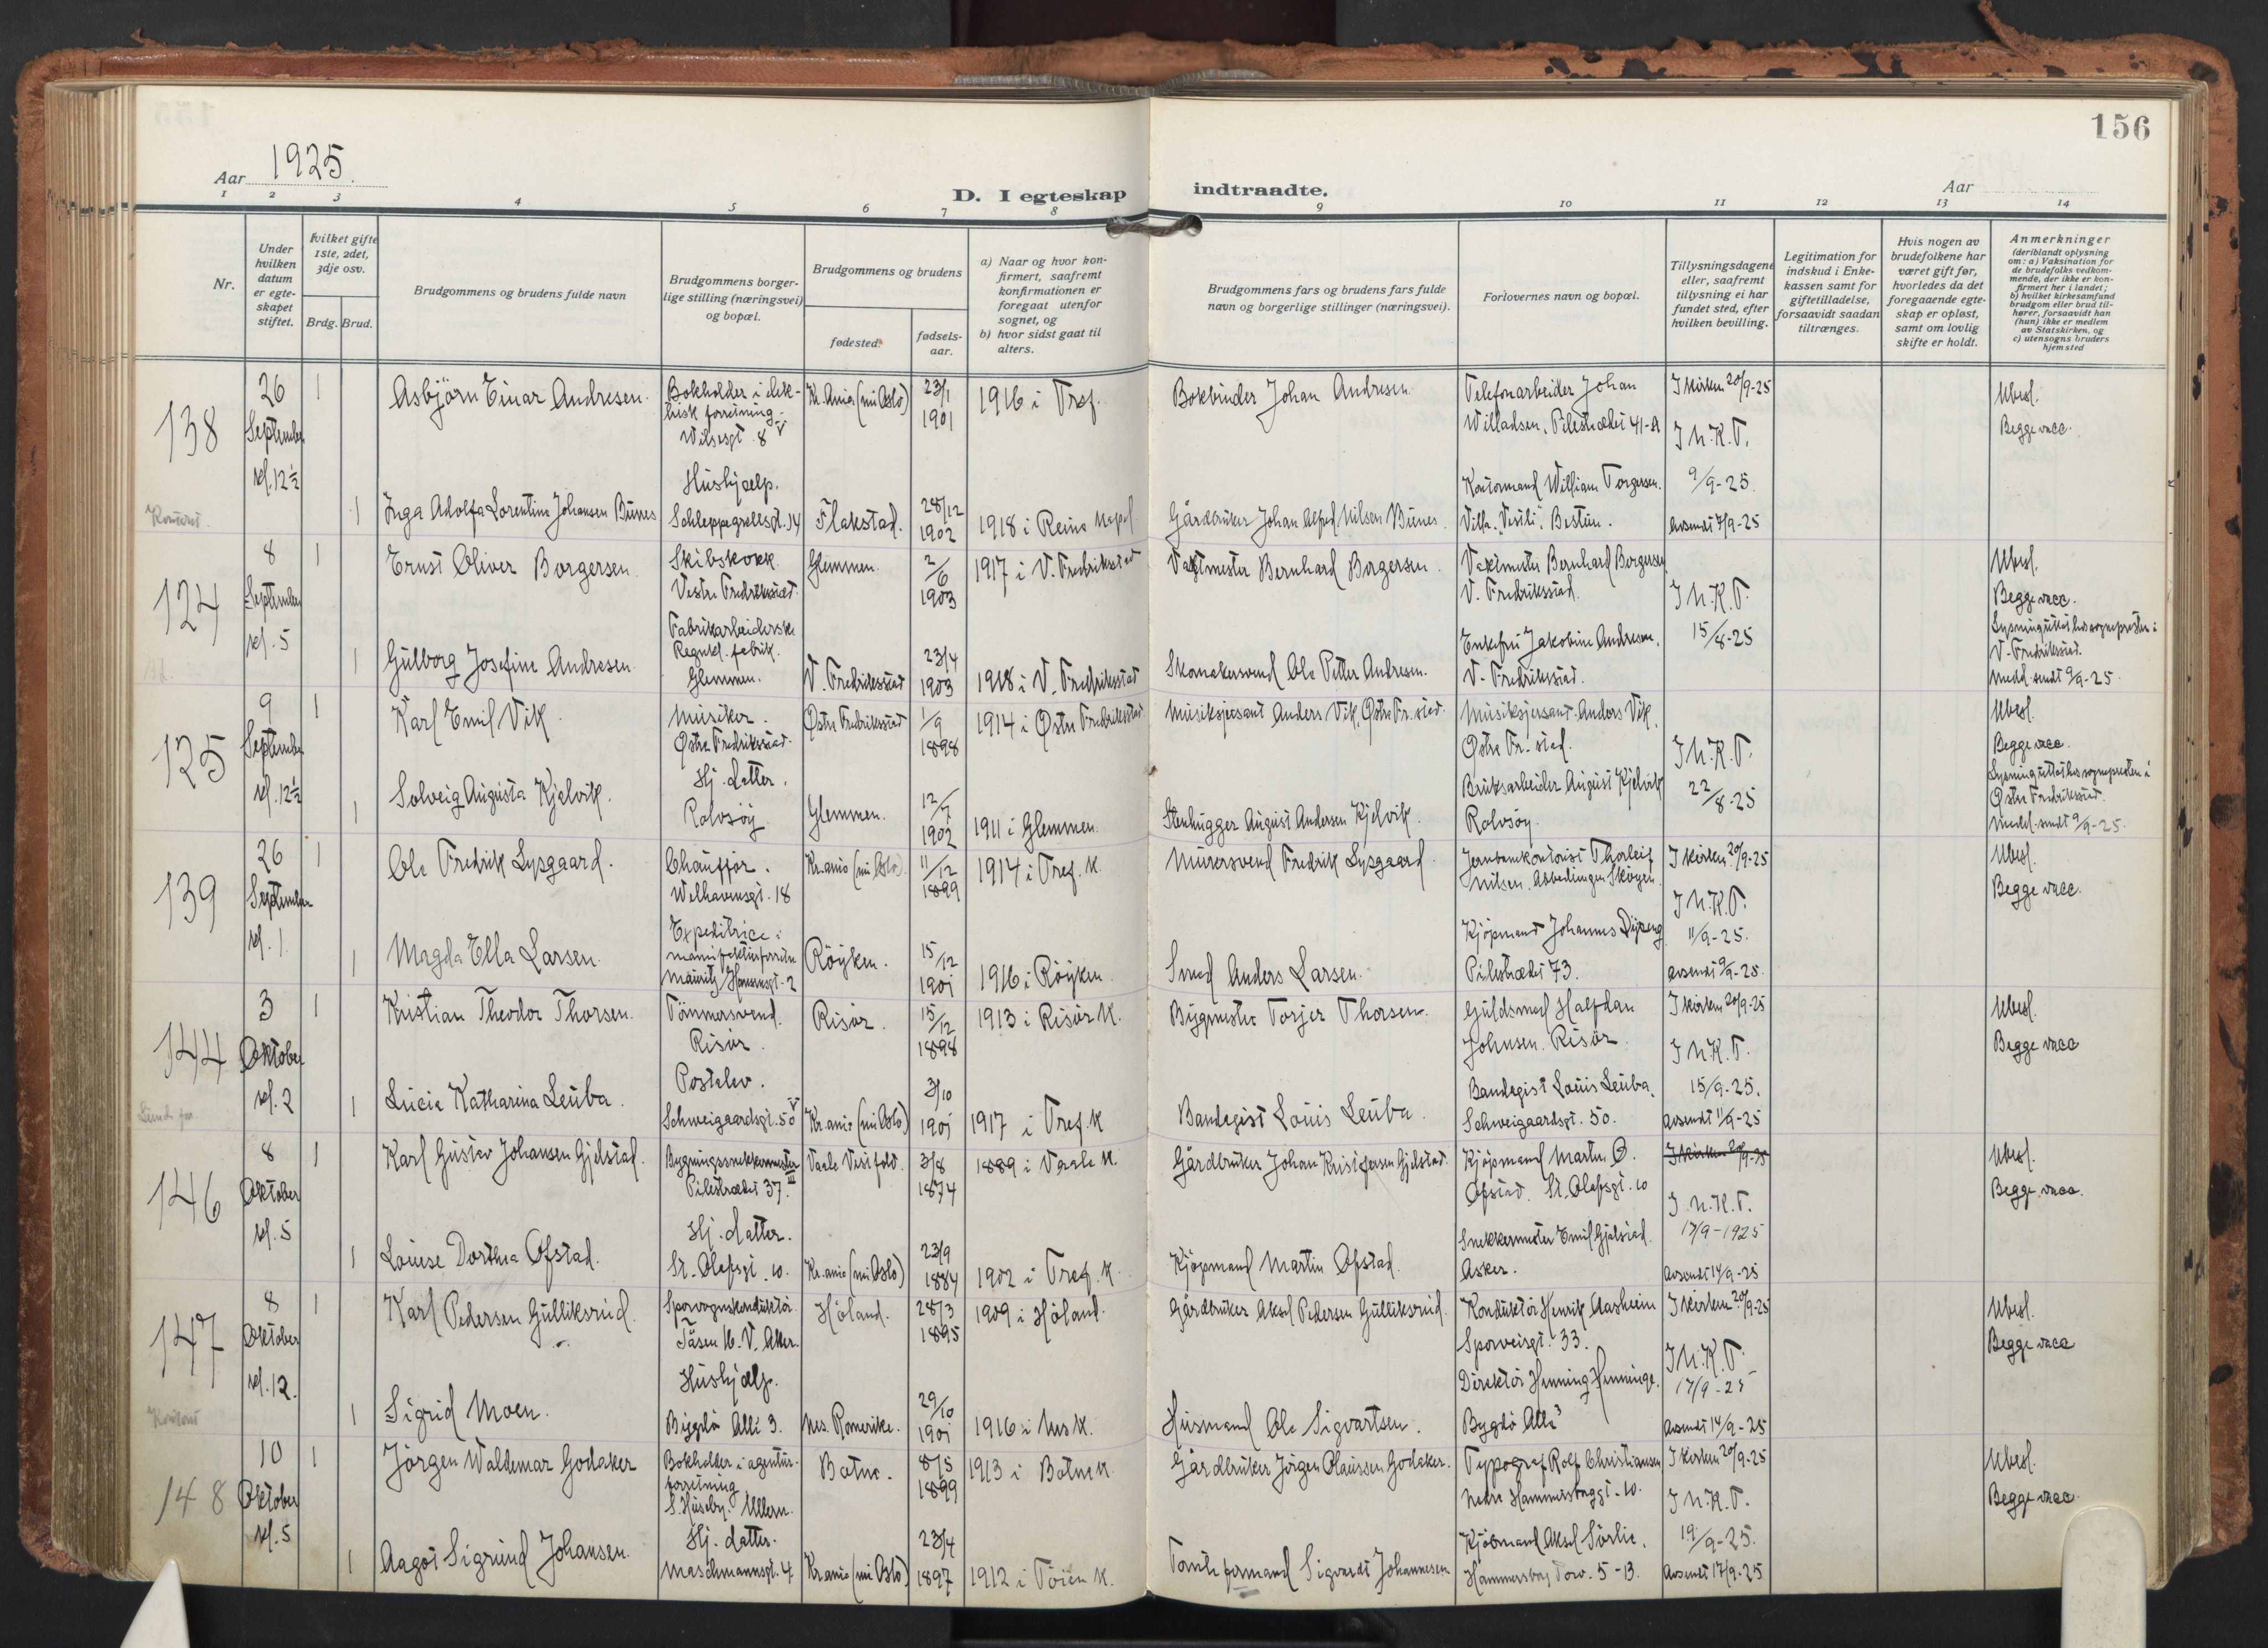 156
Aar 1925.
D. I egteskap indtraadte.
Aar
1 2 3 4 5 6 7 8 9 10 11 12 13 14
Nr.
Under hvilken datum er egteskapet stiftet.
Hvilket gifte 1ste, 2det, 3dje osv.
Brdg. Brud.
Brudgommens og brudens fulde navn
Brudgommens borgerlige stilling (næringsvei) og bopæl.
Brudgommens og brudens
fødested.
fødselsaar.
a) Naar og hvor konfirmert, saafremt konfirmationen er foregaat utenfor sognet, og
b) hvor sidst gaat til alters.
Brudgommens fars og brudens fars fulde navn og borgerlige stillinger (næringsvei).
Forlovernes navn og bopæl.
Tillysningsdagene eller, saafremt tillysning ei har fundet sted, efter hvilken bevilling.
Legitimation for indskud i Enkekassen samt for giftetilladelse, forsaavidt saadan tiltrænges.
Hvis nogen av brudefolkene har været gift før, hvorledes da det foregaaende egteskap er opløst, samt om lovlig skifte er holdt.
Anmerkninger
(deriblandt oplysning om: a) Vaksination for de brudefolks vedkommende, der ikke er konfirmert her i landet; b) hvilket kirkesamfund brudgom eller brud tilhører, forsaavidt han (hun) ikke er medlem av Statskirken, og c) utensogns bruders hjemsted
138
26 September kl. 12½
1
Asbjörn Einar Andresen.
Bokholder i elektrisk forretning.
Wilsesgt. 8 V
Kr.ania (nu Oslo)
23/1 1901
1916 i Tref.
Bokbinder Johan Andresen.
Telefonarbeider Johan Willadsen. Pilestrædet 41-A
I kirken 20/9-25
I U.K.T.
9/9-25.
Avsendt 7/9-25
Ubesl.
Begge vacc.
1
Inga Adolfa Lorentine Johansen Bunes
Hushjælp.
Schleppegrellsgt. 14
Flakstad.
28/12 1902
1918 i Reine kapel
Gårdbruker Johan Alfred Nilsen Bunes.
Kontormand William Torgersen.
Villa "Vestli", Bestun.
124
8 September kl. 5
1
Ernst Oliver Borgersen.
Skibskokk.
Vestre Fredriksstad.
Glemmen.
2/6 1903
1917 i V. Fredriksstad
Vaktmester Bernhard Borgersen.
Vaktmester Bernhard Borgersen
V. Fredriksstad.
I U.K.T.
15/8-25
Ubesl.
Begge vacc.
Lysning uttat hos sognepresten i
V. Fredriksstad.
Medd. sendt 9/9-25.
1
Gulborg Josefine Andresen.
Fabrikarbeiderske
Glemmen.
V. Fredriksstad
23/4 1903
1918 i V. Fredriksstad
Skomakersvend Ole Petter Andresen.
Enkefru Jakobine Andresen.
V. Fredriksstad.
125
9 September kl. 12½
1
Karl Emil Vik.
Musiker.
Østre Fredriksstad.
Østre Fredriksstad
1/9 1898
1914 i Østre Fredriksstad
Musiksjersant Anders Vik, Østre Fr.stad.
Musiksjersant Anders Vik.
Østre Fr.stad.
I U.K.T.
22/8-25
Ubesl.
Begge vacc.
Lysning uttat hos sognepresten i
Østre Fredriksstad.
Medd. sendt 9/9-25.
1
Solveig Augusta Kjølvik.
Hj. datter.
Rolvsøy.
Glemmen.
12/7 1902
1911 i Glemmen.
Stenhugger August Andersen Kjølvik.
Bruksarbeider August Kjølvik
Rolvsøy.
139
26 September kl. 1.
1
Ole Fredrik Lysgaard.
Chauffør.
Welhavensgt. 18
Kr.ania (nu Oslo).
11/12 1899
1914 i Tref. K.
Murersvend Fredrik Lysgaard
Jernbanekontorist Thorleif Nilsen. Abbediengen Skøyen.
I kirken 20/9-25
I U.K.T.
11/9-25.
avsendt 9/9-25.
Ubesl.
Begge vacc.
1
Magda Ella Larsen.
Expeditrice i
manufakturforretn.
Mauritz Hansensgt. 2
Röyken.
15/12 1901
1916 i Röyken.
Smed Anders Larsen.
Kjöpmand Johannes
Pilestrædet 73.
144
3 Oktober kl. 2
1
Kristian Theodor Thorsen.
Tömmersvend.
Risör.
Risör.
15/12 1898
1913 i Risör K.
Bygmester Torjer Thorsen.
Guldsmed Halfdan Johnsen. Risör.
I kirken 20/9-25
I U.K.T.
15/9-25.
avsendt 11/9-25
Ubesl.
Begge vacc
1
Lucie Katharina Leuba.
Postelev.
Schweigaardsgt. 50 V
Kr.ania (nu Oslo)
3/10 1901
1917 i Tref. K
Bandagist Louis Leuba.
Bandagist Louis Leuba.
Schweigaardsgt. 50.
146
8 Oktober kl. 5
1
Karl Gustav Johansen Gjelstad.
Bygningssnekkermester
Pilestrædet 37. III
Vaale Vestfold.
3/8 1874
1889 i Vaale K.
Gårdbruker Johan Kristofersen Gjelstad.
Kjöpmand Martin O. Ofstad. St. Olafsgt. 10
I kirken 20/9-25
I U.K.T.
17/9-1925
Avsendt 14/9-25
Ubesl.
Begge vacc.
1
Louise Dorthea Ofstad.
Hj. datter.
St. Olafsgt. 10.
Kr.ania (nu Oslo)
23/9 1884
1902 i Tref. K.
Kjöpmand Martin Ofstad.
Snekkermester Emil Gjelstad.
Asker.
147
8 Oktober kl. 12.
1
Karl Pedersen Gulliksrud.
Sporvognskonduktör.
Tåsen H.V. Aker.
Höland.
28/3 1895
1909 i Höland.
Gårdbruker Aksel Pedersen Gulliksrud.
Konduktör Henrik Aasheim
Sporveisgt. 33.
I kirken 20/9-25
I U.K.T.
17/9-25
Avsendt 14/9-25
Ubesl.
Begge vacc
1
Sigrid Moen.
Hushjælp.
Bygdö Allé 3.
Nes. Romerike.
29/10 1901
1916 i Nes K.
Husmand Ole Sigvartsen.
Direktör Henning Henninge.
Bygdö Allé 3
148
10 Oktober kl. 5
1
Jörgen Waldemar Godaker
Bokholder i agenturforretning
S. Huseby. Ullern.
Botne.
8/5 1899
1913 i Botne K.
Gårdbruker Jörgen Olaussen Godaker.
Typograf Rolf Christiansen
Nedre Hammersborggt. 10.
I kirken 20/9-25
I U.K.T.
19/9-25.
Avsendt 17/9-25
Ubesl.
Begge vacc.
1
Aagot Sigrund Johansen.
Hj. datter.
Maschmannsgt. 4.
Kr.ania (nu Oslo)
23/4 1897
1912 i Töien K.
Tomteformand Sigvardt Johannesen
Kjöbmand Aksel Sörlie.
Hammersborg Torv. 5-13.